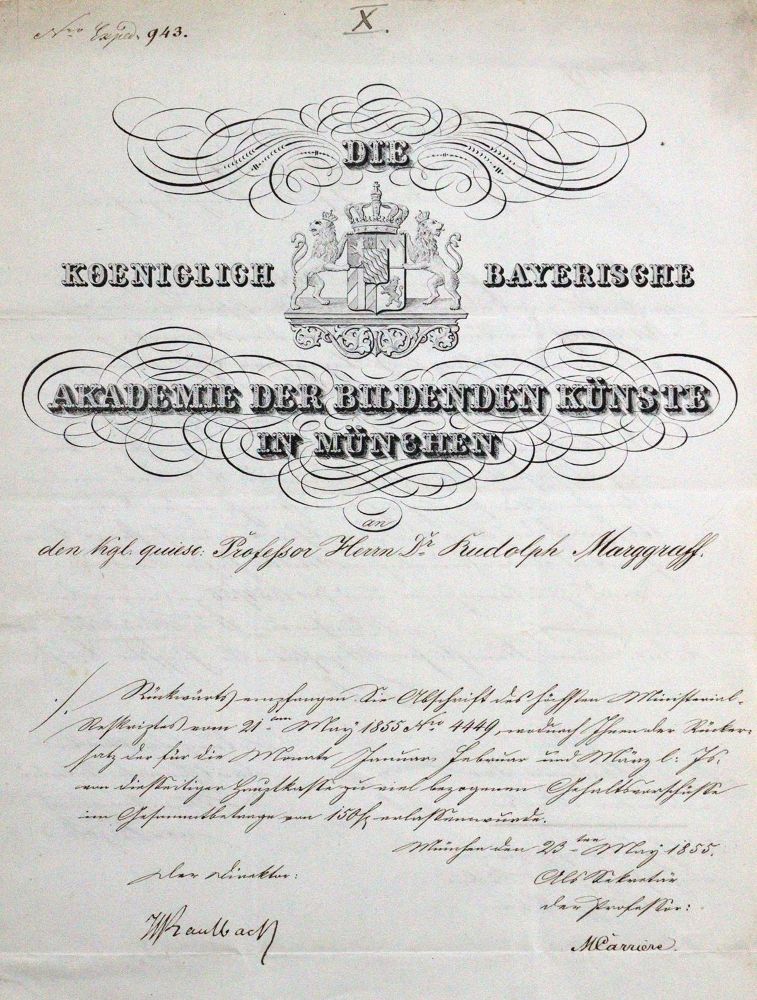 Nro Exped. 943.
X.
DIE
KOENIGLICH BAYERISCHE
AKADEMIE DER BILDENDEN KÜNSTE
IN MÜNCHEN
an
den kgl. quiesc: Professor Herrn Dr. Rudolph Marggraff.
./. Rückwärts empfangen Sie Abschrift des höchsten Ministerial-
Reskriptes vom 21ten May 1855 Nro 4449, wodurch Ihnen der Rücker-
satz der für die Monate Januar, Februar und März l: Js.
von diesseitiger Hauptkasse zu viel bezogenen Gehaltsvorschüsse
im Gesammtbetrage von 150 f. erlassen wurde.
München den 23ten May 1855.
Der Direktor: Als Sekretär
der Professor:
WKaulbach MCarriere.